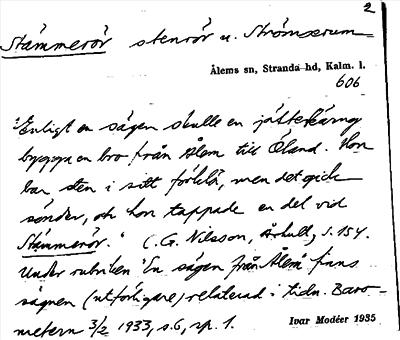 2
Stämmerör stenrör u. Strömserum
Ålems sn, Stranda hd, Kalm. l.
606
"Enligt en sägen skulle en jättekäring
bygga en bro från Ålem till Öland. Hon
bar sten i sitt förklä, men det gick
sönder, och hon tappade en del vid
Stämmerör." C. G. Nilsson, Århult, s. 154.
Under rubriken "En sägen från Ålem" finns
sägnen (utförligare) relaterad i tidn. Baro-
metern 3/2 1933, s. 6, sp. 1.
Ivar Modéer 1935